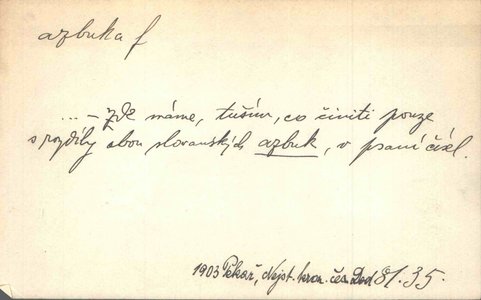 azbuka f
... – zde máme, tuším, co činiti pouze
s rozdíly obou slovanských azbuk, v psaní čísl.
1903 Pekař, Nejst. kron. čes. Dod 81.35.